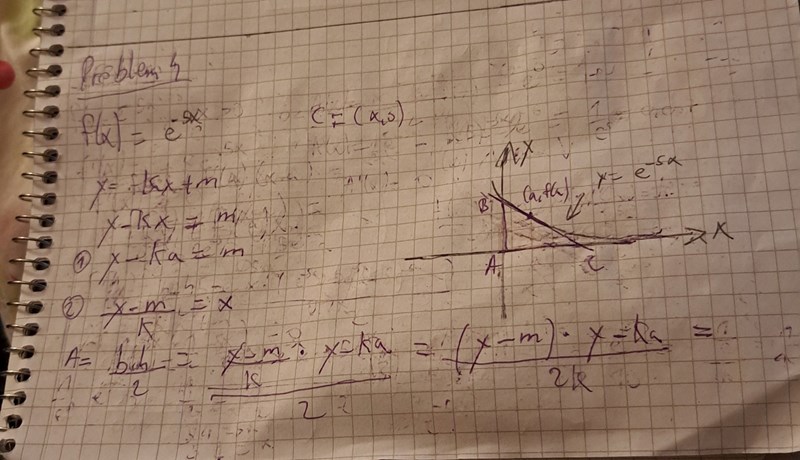 Problem 4
f(x) = e^-5x
C = (x,0)
y = kx + m
y - kx = m
① y - ka = m
② (y-m)/k = x
A = (b·h)/2 = ((y-m)/k · y-ka)/2 = ((y-m) · y-ka)/2k =
y
B
(a, f(a))
y = e^-5x
x
A
C